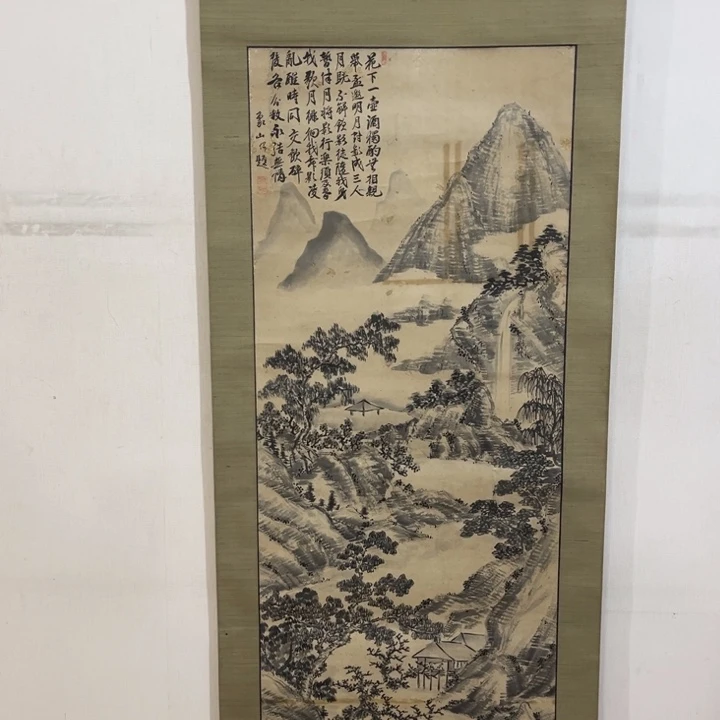 花下一壺酒獨酌無相親
舉盃邀明月對影成三人
月既不解飲影徒隨我身
暫伴月將影行樂須及春
我歌月徘徊我舞影凌
亂醒時同交歡醉
後各分散永結無情
象山題